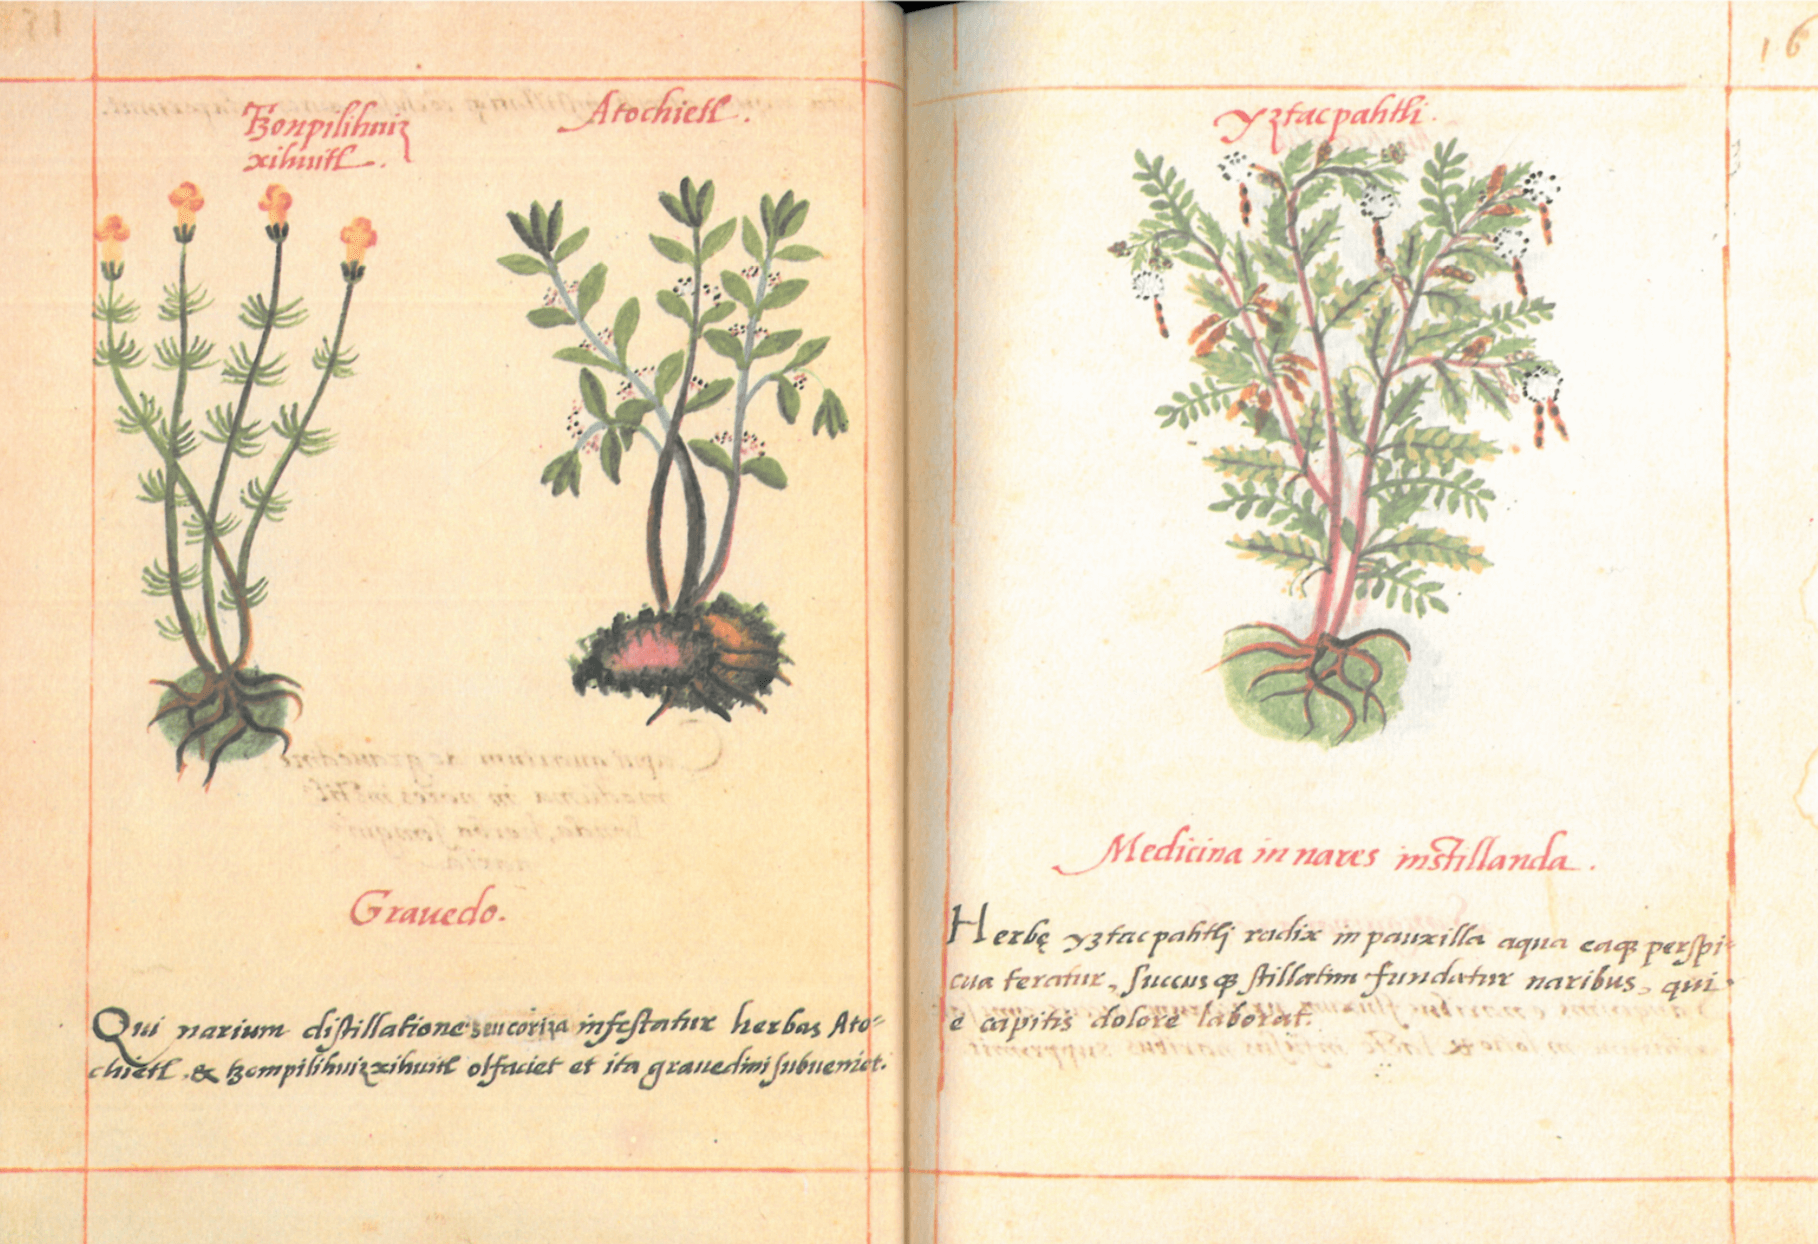 Tzonpilihuiz
xihuitl.
Atochietl.
Grauedo.
Qui narium distillatione seu coriza infestatur herbas Ato-
chietl & tzompilihuizxihuitl olfaciet et ita grauedini subueniet.
16
Yztacpahtli.
Medicina in nares instillanda.
Herbę yztacpahtli radix in pauxilla aqua eaq̃ perspi-
cua teratur, succusq̃ stillatim fundatur naribus, qui
e capitis dolore laborat.